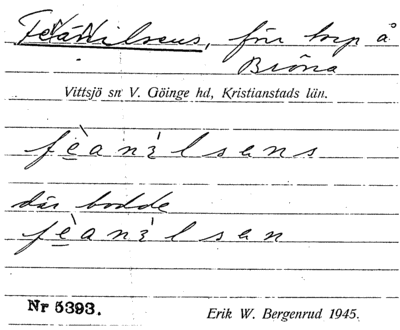 FeáNilsens, för torp å
Bröna
Vittsjö sn V. Göinge hd, Kristianstads län.
fèanìlsens
där bodde
fèanìlsen
Nr 5393.
Erik W. Bergenrud 1945.